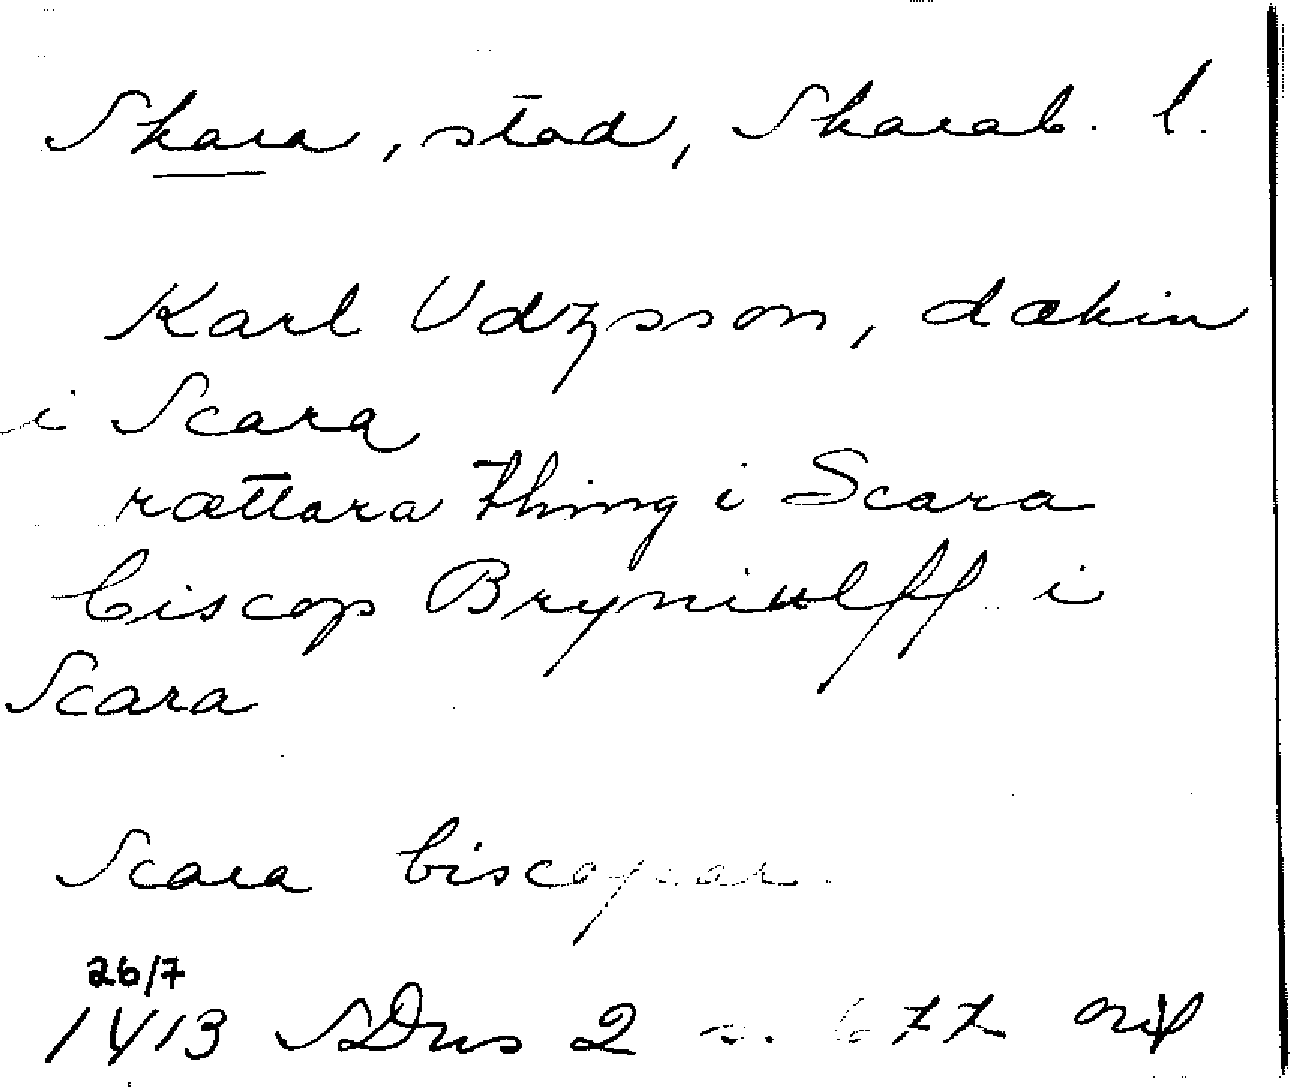 Skara, stad, Skarab. l.
Karl Udzsson, dækin
i Scara
rættara thing i Scara
biscop Bryniulff i
Scara
Scara biscopar
26/7
1413 SDns 2 s. 677 or